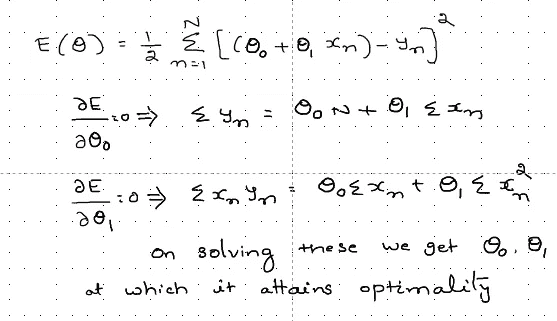 E(θ) = 1/2 Σ_{n=1}^{N} [(θ₀ + θ₁ xₙ) - yₙ]²
∂E/∂θ₀ = 0 ⇒ Σ yₙ = θ₀ N + θ₁ Σ xₙ
∂E/∂θ₁ = 0 ⇒ Σ xₙ yₙ = θ₀ Σ xₙ + θ₁ Σ xₙ²
on solving these we get θ₀, θ₁
at which it attains optimality